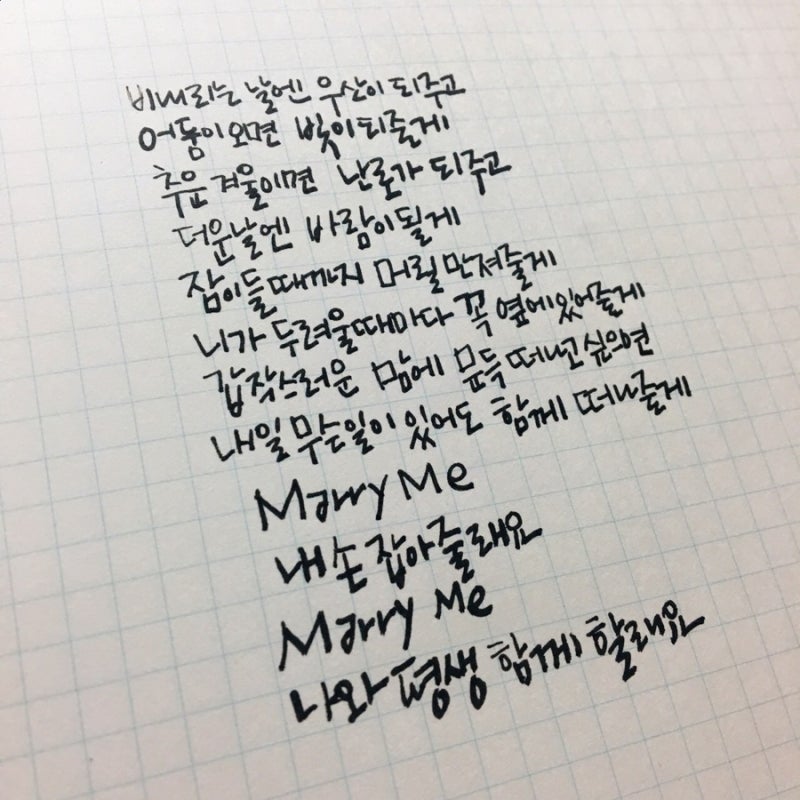 비내리는 날엔 우산이 되주고
어둠이 오면 빛이 되줄게
추운 겨울이면 난로가 되주고
더운날엔 바람이 될게
잠이들때까지 머릴 만져줄게
니가 두려울때마다 꼭 옆에있어줄게
갑작스러운 맘에 문득 떠나고 싶으면
내일 무슨일이 있어도 함께 떠나줄게
Marry Me
내 손 잡아 줄래요
Marry Me
나와 평생 함께 할래요